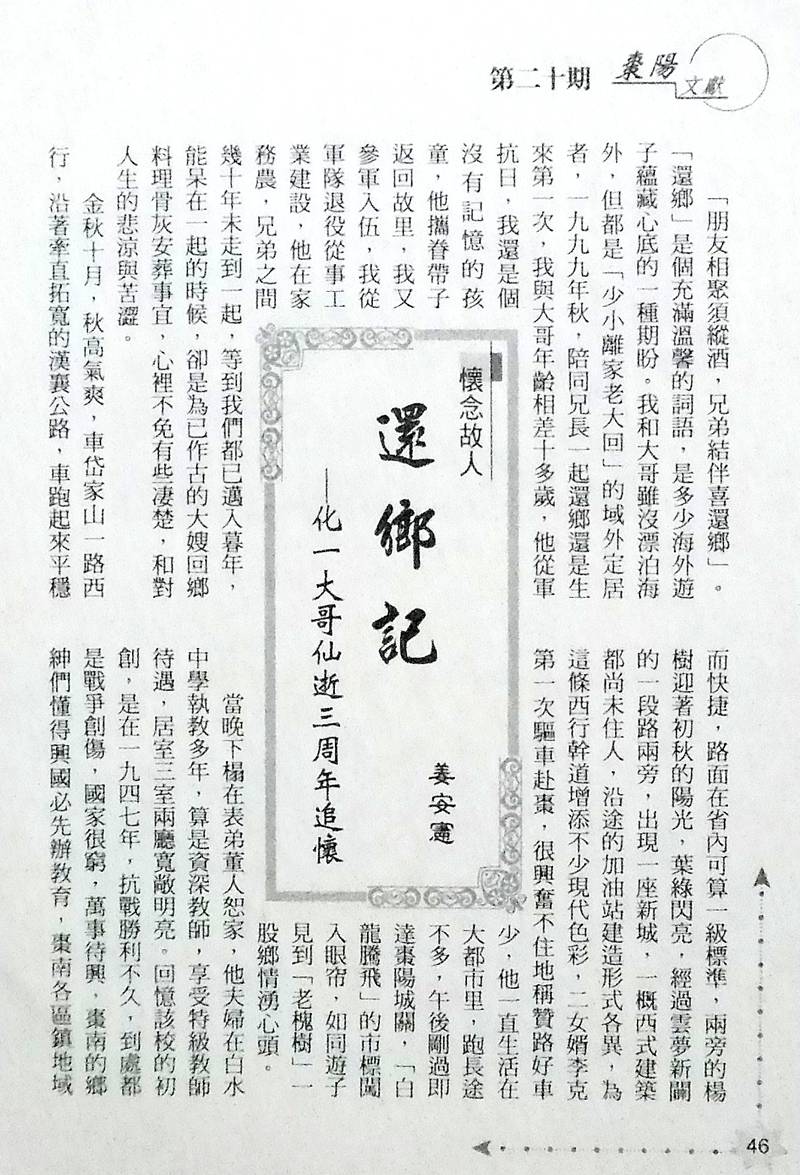 棗陽
文獻
第二十期
「朋友相聚須縱酒，兄弟結伴喜還鄉」。
「還鄉」是個充滿溫馨的詞語，是多少海外遊
子蘊藏心底的一種期盼。我和大哥雖沒漂泊海
外，但都是「少小離家老大回」的域外定居
者，一九九九年秋，陪同兄長一起還鄉還是生
來第一次，我與大哥年齡相差十多歲，他從軍
抗日，我還是個
沒有記憶的孩
童，他攜眷帶子
返回故里，我又
參軍入伍，我從
軍隊退役從事工
業建設，他在家
務農，兄弟之間
幾十年未走到一起，等到我們都已邁入暮年，
能呆在一起的時候，卻是為已作古的大嫂回鄉
料理骨灰安葬事宜，心裡不免有些凄楚，和對
人生的悲涼與苦澀。
金秋十月，秋高氣爽，車岱家山一路西
行，沿著牽直拓寬的漢襄公路，車跑起來平穩
懷念故人
還鄉記
—化一大哥仙逝三周年追懷
姜安憲
而快捷，路面在省內可算一級標準，兩旁的楊
樹迎著初秋的陽光，葉綠閃亮，經過雲夢新闢
的一段路兩旁，出現一座新城，一概西式建築
都尚未住人，沿途的加油站建造形式各異，為
這條西行幹道增添不少現代色彩，二女婿李克
第一次驅車赴棗，很興奮不住地稱贊路好車
少，他一直生活在
大都市里，跑長途
不多，午後剛過即
達棗陽城關，「白
龍騰飛」的市標闖
入眼帘，如同遊子
見到「老槐樹」一
股鄉情湧心頭。
當晚下榻在表弟董人恕家，他夫婦在白水
中學執教多年，算是資深教師，享受特級教師
待遇，居室三室兩廳寬敞明亮。回憶該校的初
創，是在一九四七年，抗戰勝利不久，到處都
是戰爭創傷，國家很窮，萬事待興，棗南的鄉
紳們懂得興國必先辦教育，棗南各區鎮地域
46